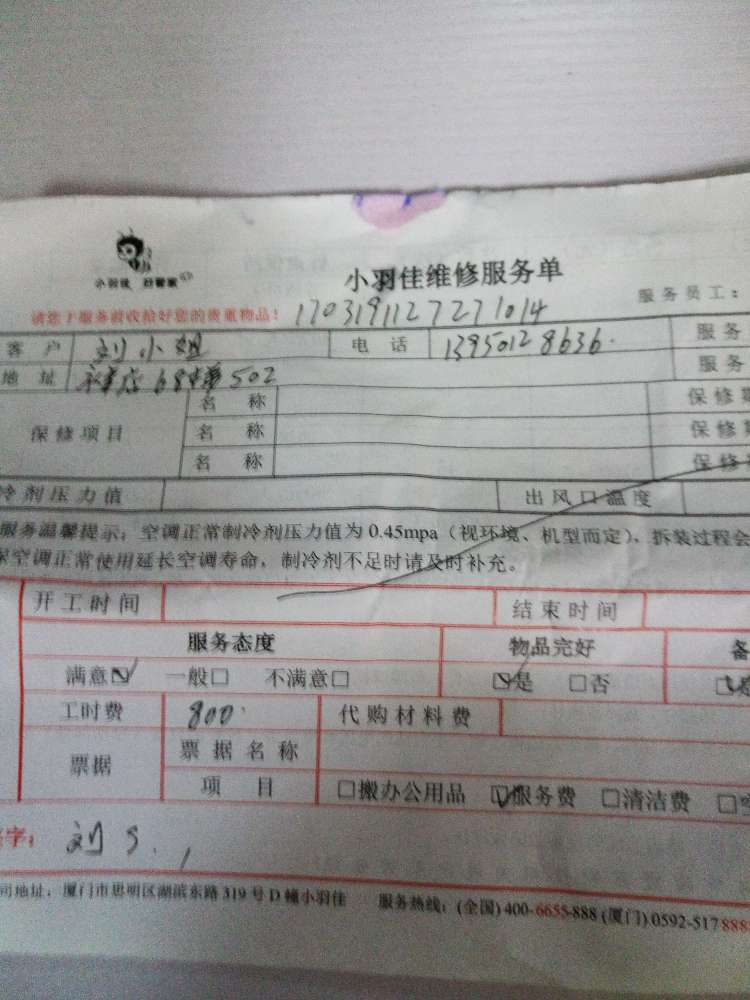 小羽佳 好管家
小羽佳维修服务单
服务员工:
请您于服务前收拾好您的贵重物品!
1703191127271014
客户 刘小姐 电话 13950128636. 服务
地址 68 502 服务
保修项目 名称 保修期
名称 保修期
名称 保修
冷剂压力值 出风口温度
服务温馨提示:空调正常制冷剂压力值为0.45mpa(视环境、机型而定),拆装过程会
保空调正常使用延长空调寿命,制冷剂不足时请及时补充。
开工时间 结束时间
服务态度 物品完好 备
满意☑ 一般□ 不满意□ ☑是 □否
工时费 800 代购材料费
票据 票据名称
项目 □搬办公用品 ☑服务费 □清洁费 □
签字: 刘
司地址:厦门市思明区湖滨东路319号D幢小羽佳 服务热线:(全国)400-6655-888 (厦门)0592-517888